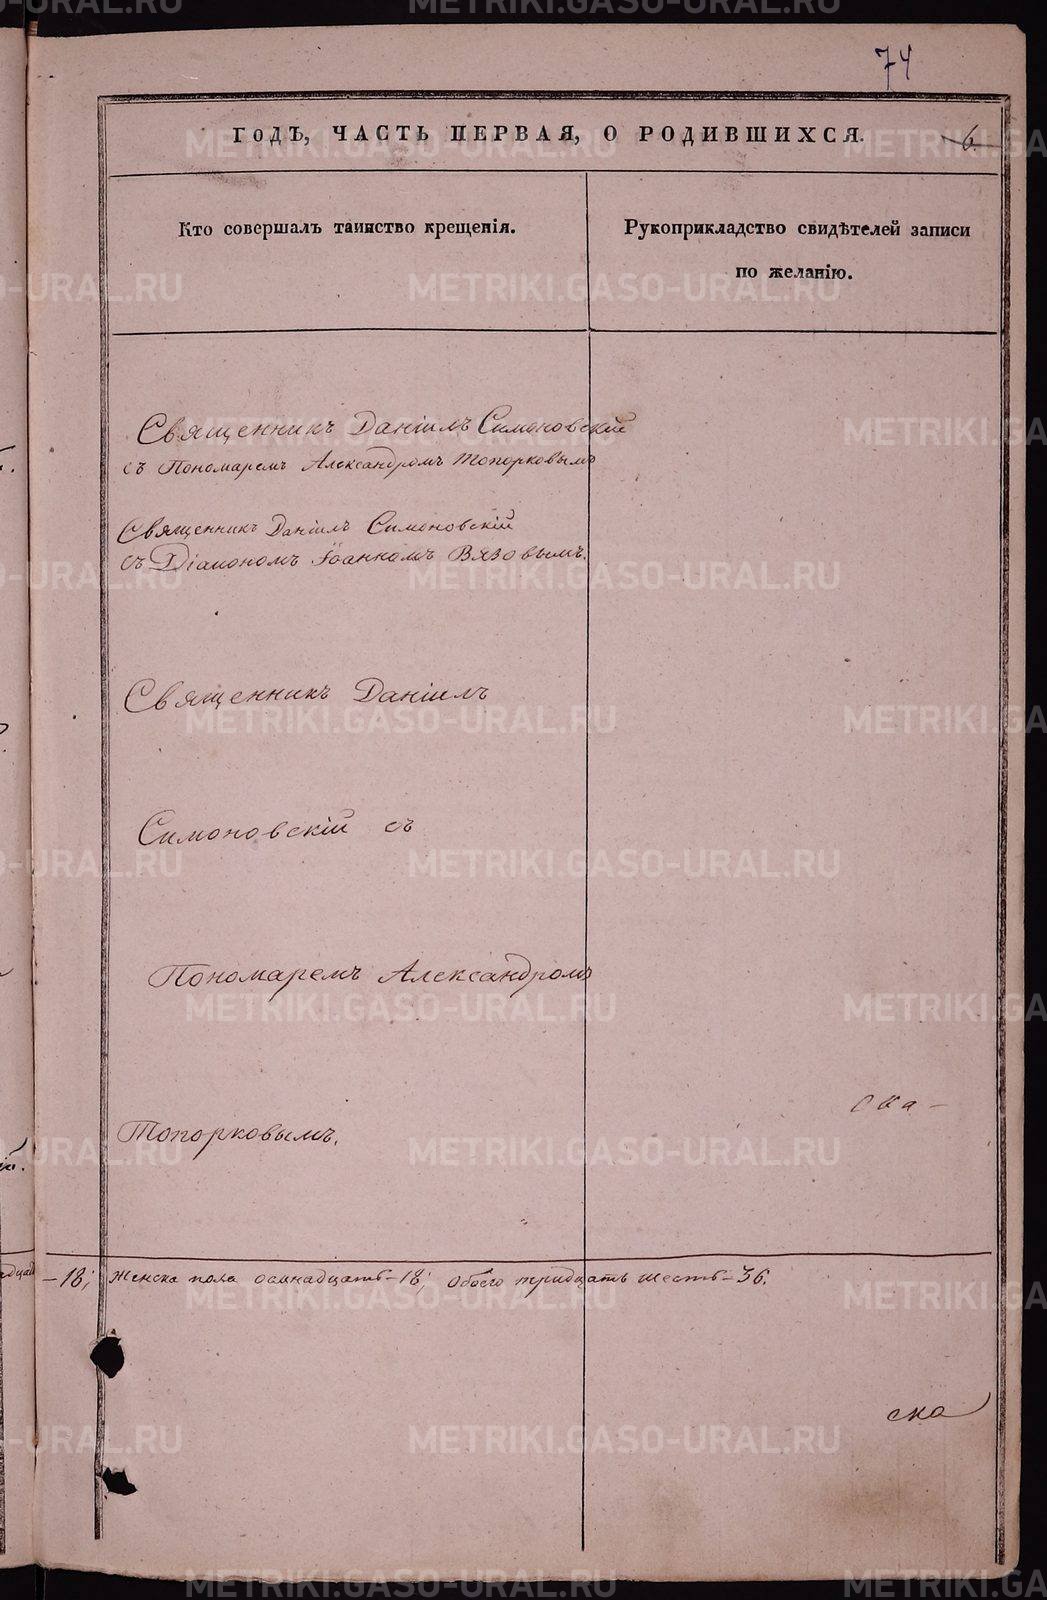 74
ГОДЪ, ЧАСТЬ ПЕРВАЯ, О РОДИВШИХСЯ.
6
Кто совершалъ таинство крещенія.
Рукоприкладство свидѣтелей записи
по желанію.
Священникъ Даніилъ Симоновскій
съ Пономаремъ Александромъ Топорковымъ
Священникъ Даніилъ Симоновскій
съ Діакономъ Іоанномъ Вязовымъ.
Священникъ Даніилъ
Симоновскій съ
Пономаремъ Александромъ
Топорковымъ.
ска-
-18; Женска пола осмнадцать-18; обоего тридцать шесть-36.
ска
METRIKI.GASO-URAL.RU